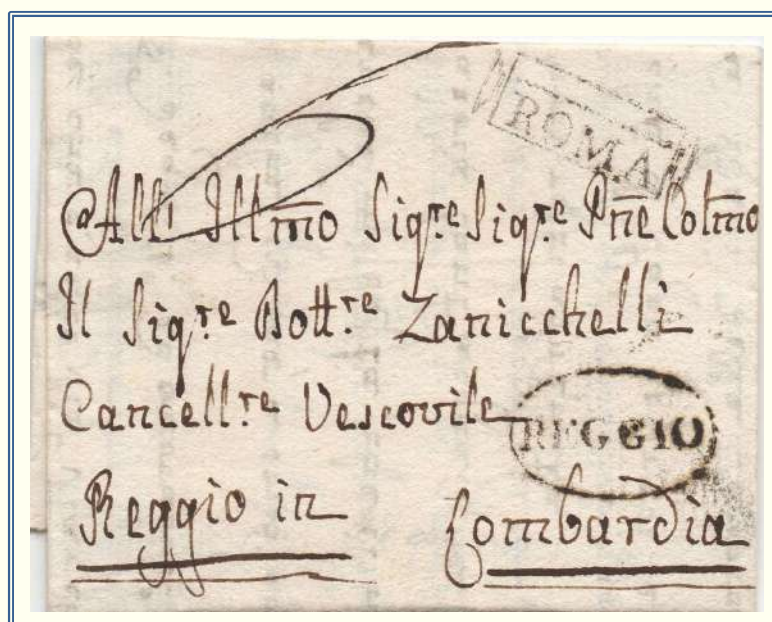 ROMA
All' Illm̅o Sigr.e Sigr.e Pn̅e Colm̅o
Il Sigr.e Dott.re Zanicchelli
Cancell.re Vescovile
REGGIO
Reggio in Lombardia